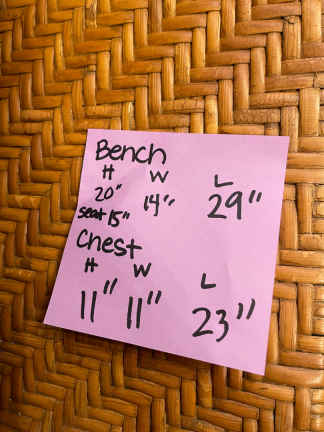 Bench
H W L
20" 14" 29"
seat 15"
Chest
H W L
11" 11" 23"